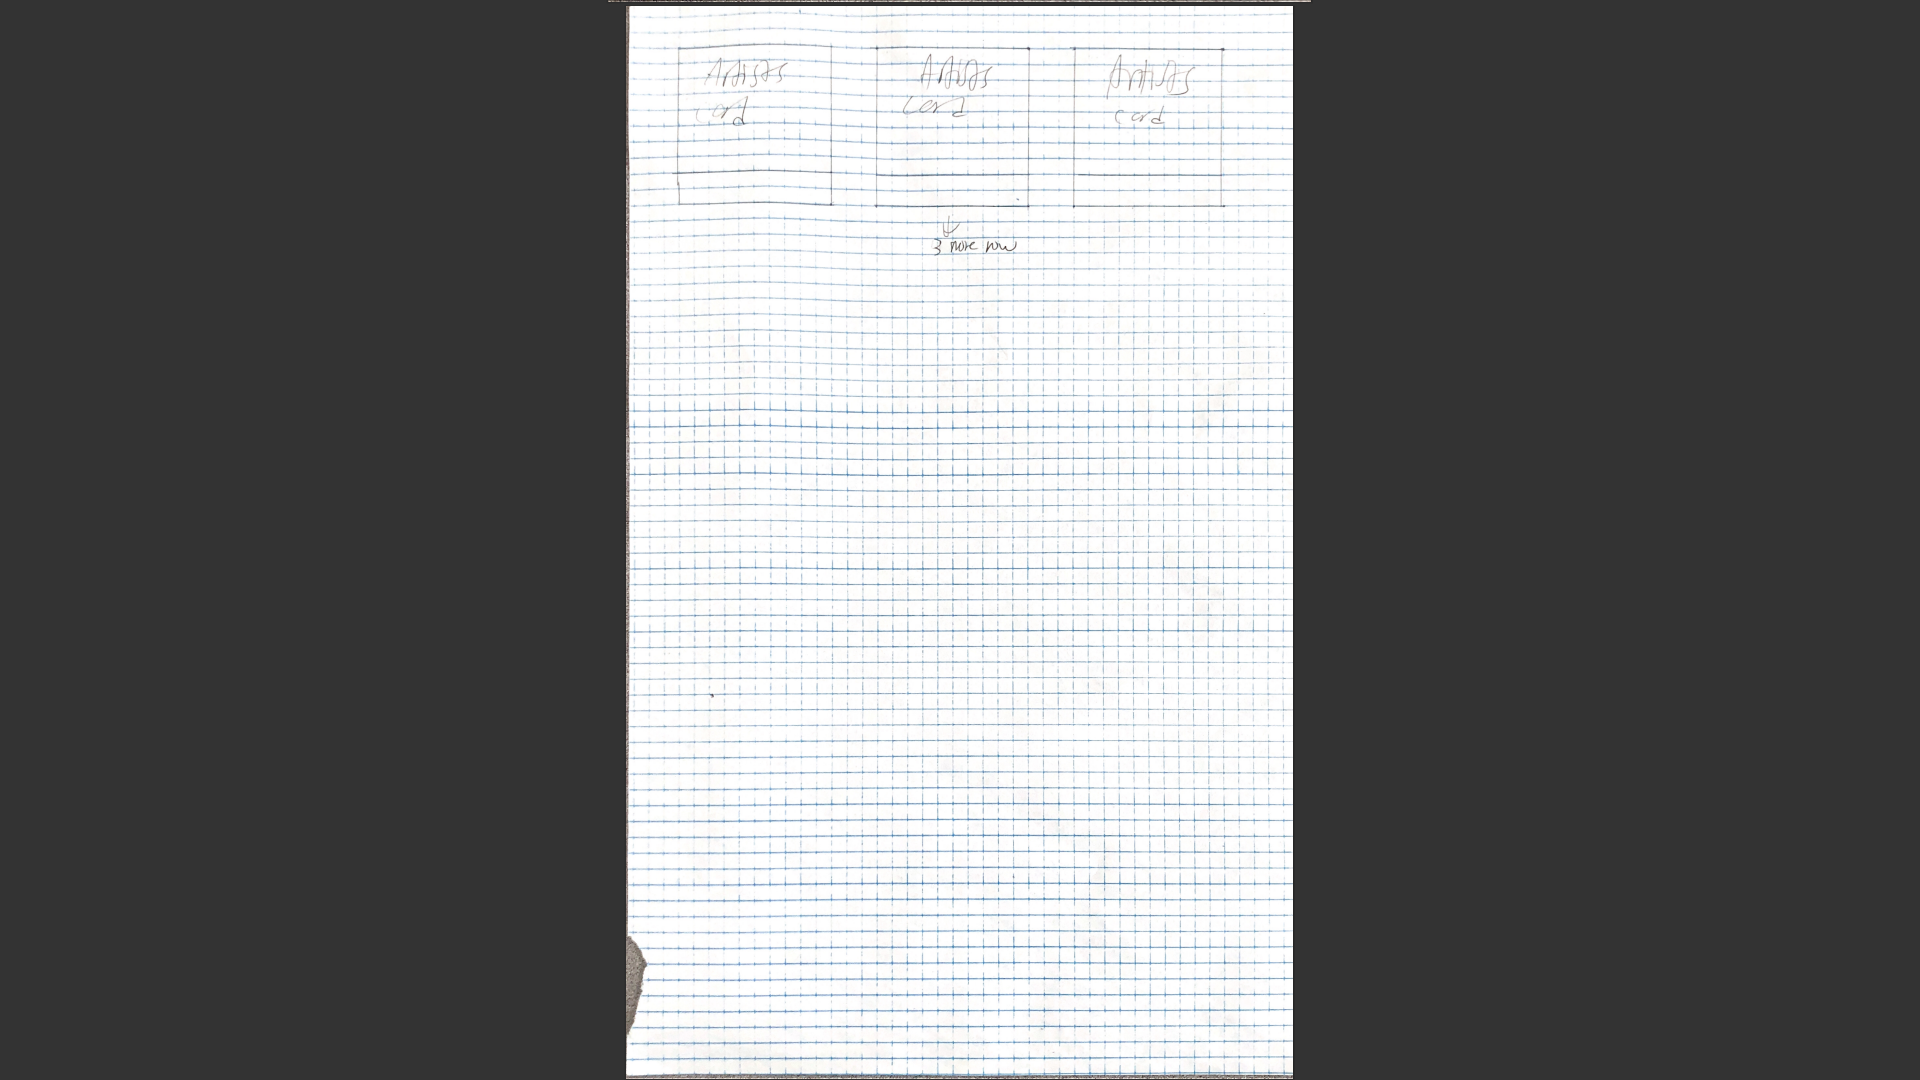 Artists
card
Artists
card
Artists
card
3 more row